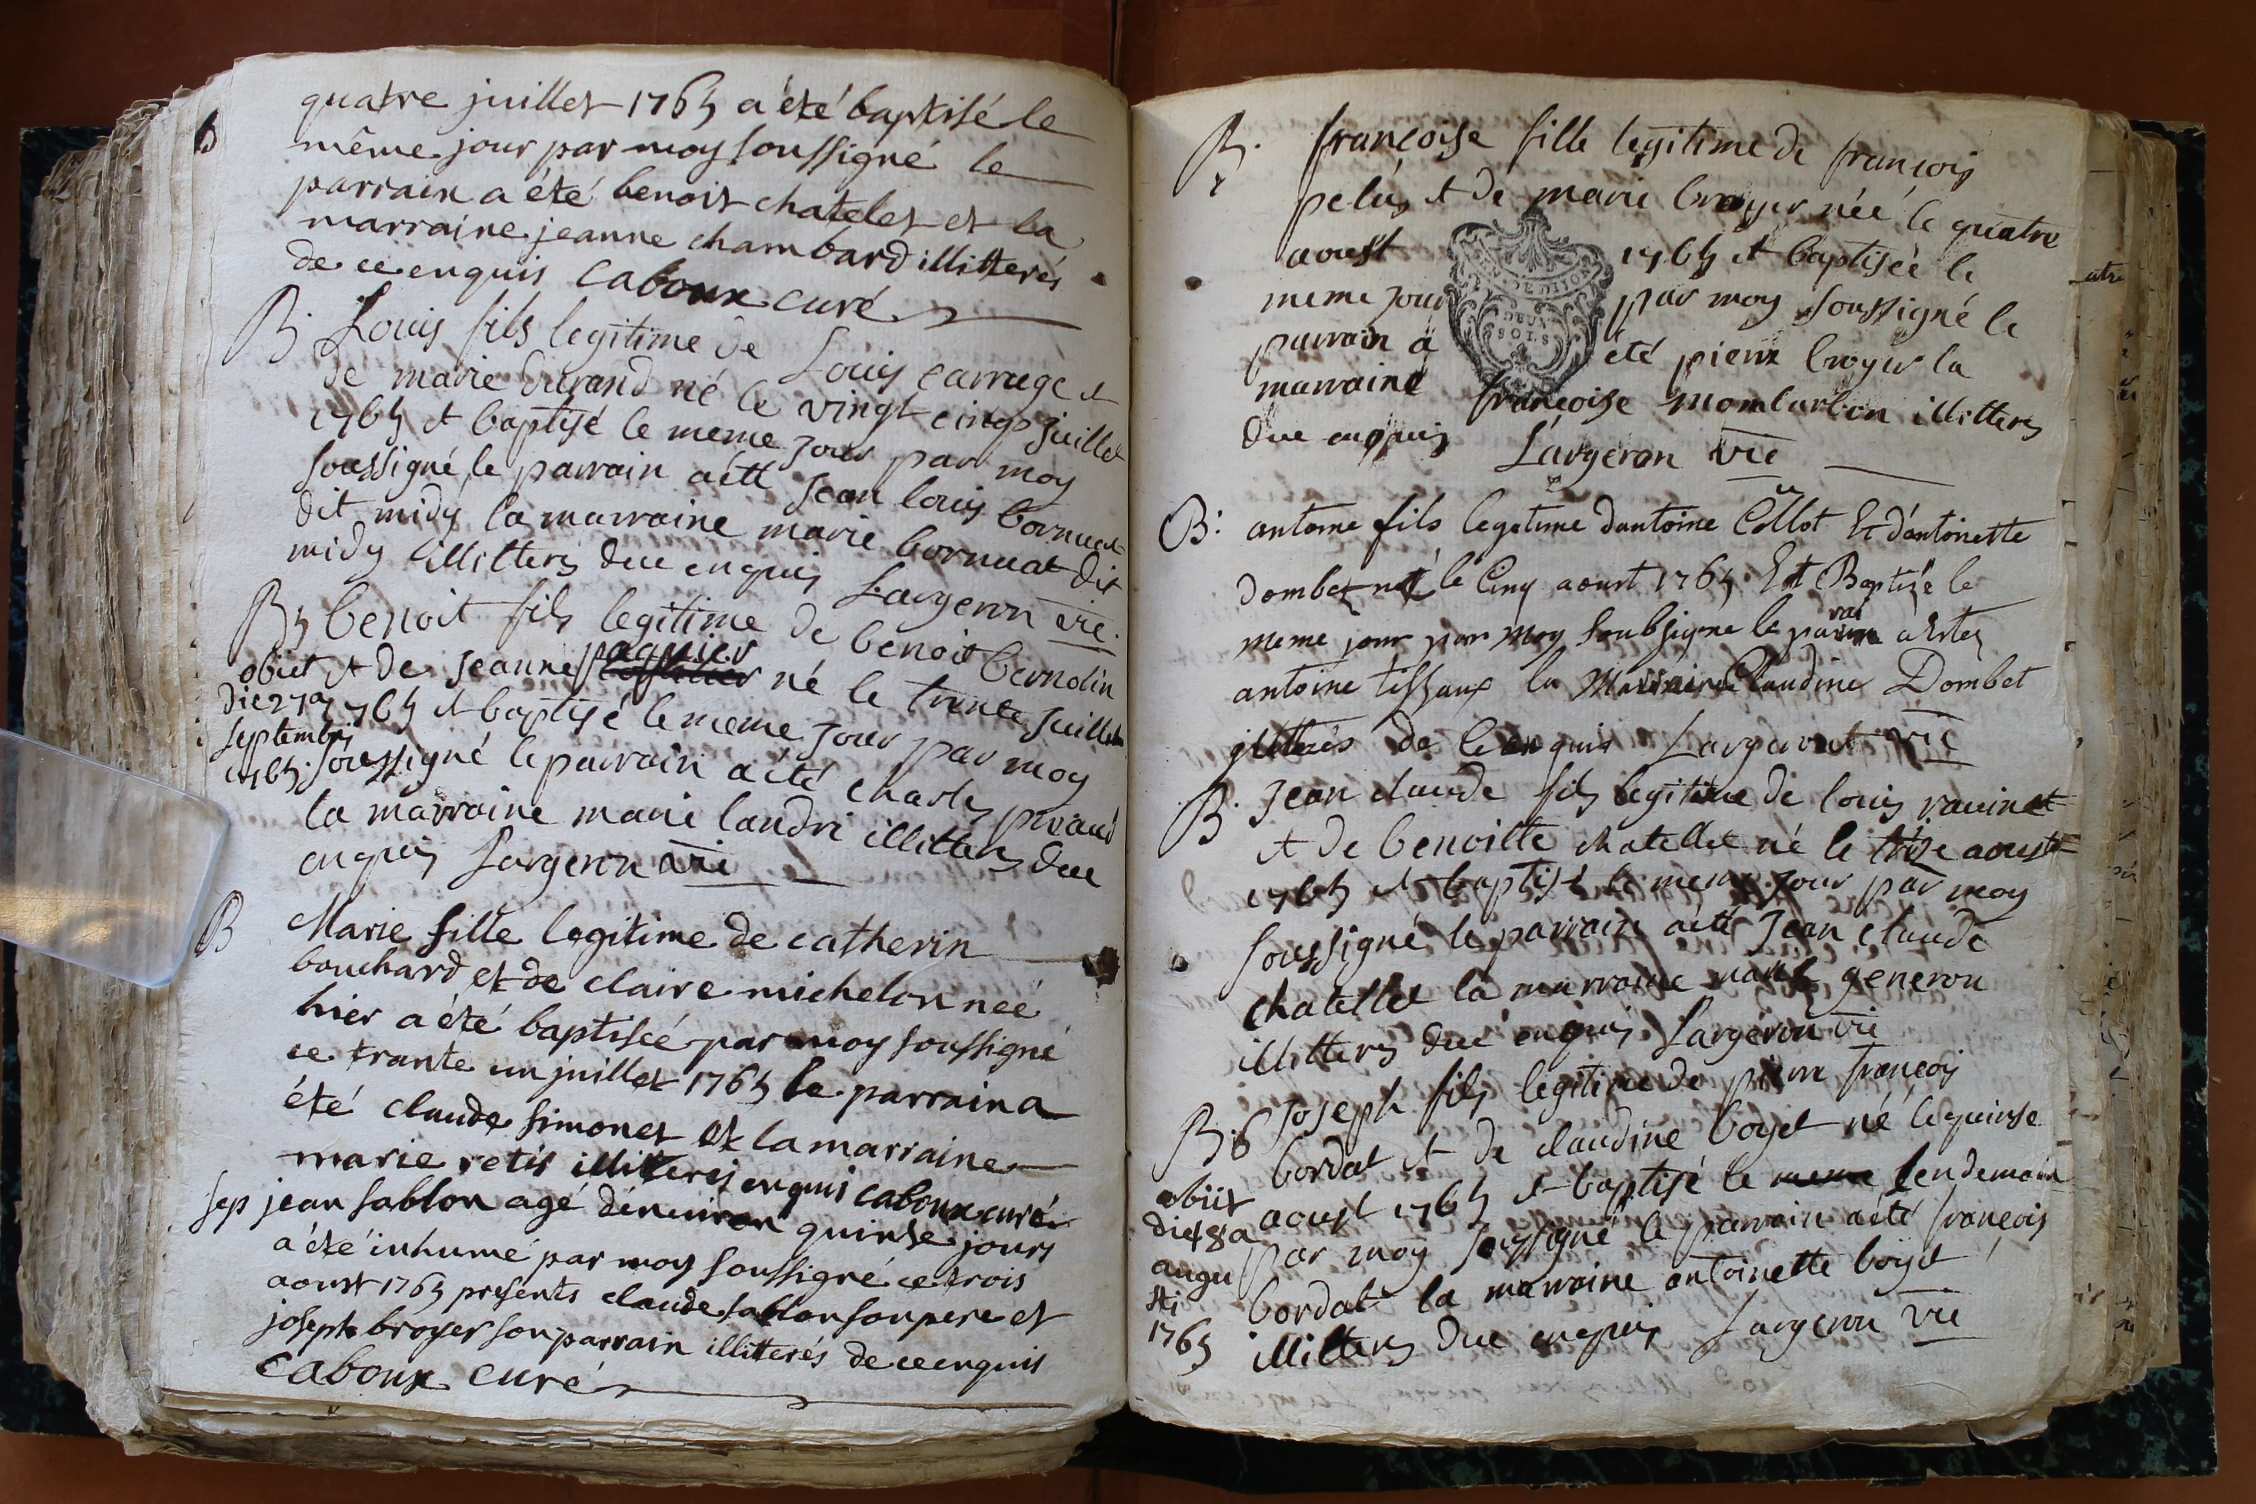 quatre juillet 1765 a été baptisé le
même jour par moy soussigné le
parrain a été benoit chatelet et la
marraine jeanne chambard illitterés
de ce enquis Caboux curé
B. Louis fils legitime de Louis carruge et
de marie durand né le vingt cinq juillet
1765 et baptisé le meme jour par moy
soussigné le parrain a été jean louis bornuat
dit midy la marraine marie bornuat dit
midy illitterés due enquis Largeron vic
B benoit fils legitime de benoit bernolin
et de jeanne paquier né le trente juillet
1765 et baptisé le meme jour par moy
soussigné le parrain a été charles piraud
la marraine marie landri illitterés due
enquis Largeron vic
obiit
die 27a
septembris
1765
B Marie fille legitime de catherin
bouchard et de claire michelon neé
hier a été baptiseé par moy soussigné
ce trante un juillet 1765 le parrain a
été claude simonet et la marraine
marie retis illitterés enquis caboux curé
sep jean sablon agé denuiron quinse jours
a été inhumé par moy soussigné ce trois
aoust 1765 presents claude sablon son pere et
joseph broyer son parrain illitterés de ce enquis
Caboux curé
B. françoise fille legitime de françois
pelus et de marie broyer née le quatre
aoust 1765 et baptisée le
meme jour par moy soussigné le
parrain a été pierre broyer la
marraine françoise mombarbon illitterés
due enquis Largeron vic
DEUX
SOLS
B. antoine fils legetime dantoine Collot Et dantoinette
Dombet né le Cinq aoust 1765 Et Baptisé le
meme jour par moy soubsigne le parrain a Ete
antoine tissaux la Marraine Claudine Dombet
illiterés de ce enquis Largeront vic
B. jean claude fils legitime de louis rauinet
et de benoitte chatellet né le treise aoust
1765 et baptisé le meme jour par moy
soussigné le parrain a été jean claude
chatellet la marraine marie generou
illitterés due enquis Largeron vic
B. joseph fils legitime de pierre françois
bordat et de claudine boyet né le quinse
aoust 1765 et baptisé le meme lendemain
par moy soussigné le parrain a été françois
bordat la marraine antoinette boyet
illitterés due enquis Largeron vic
obiit
die 18a
augu
sti
1765